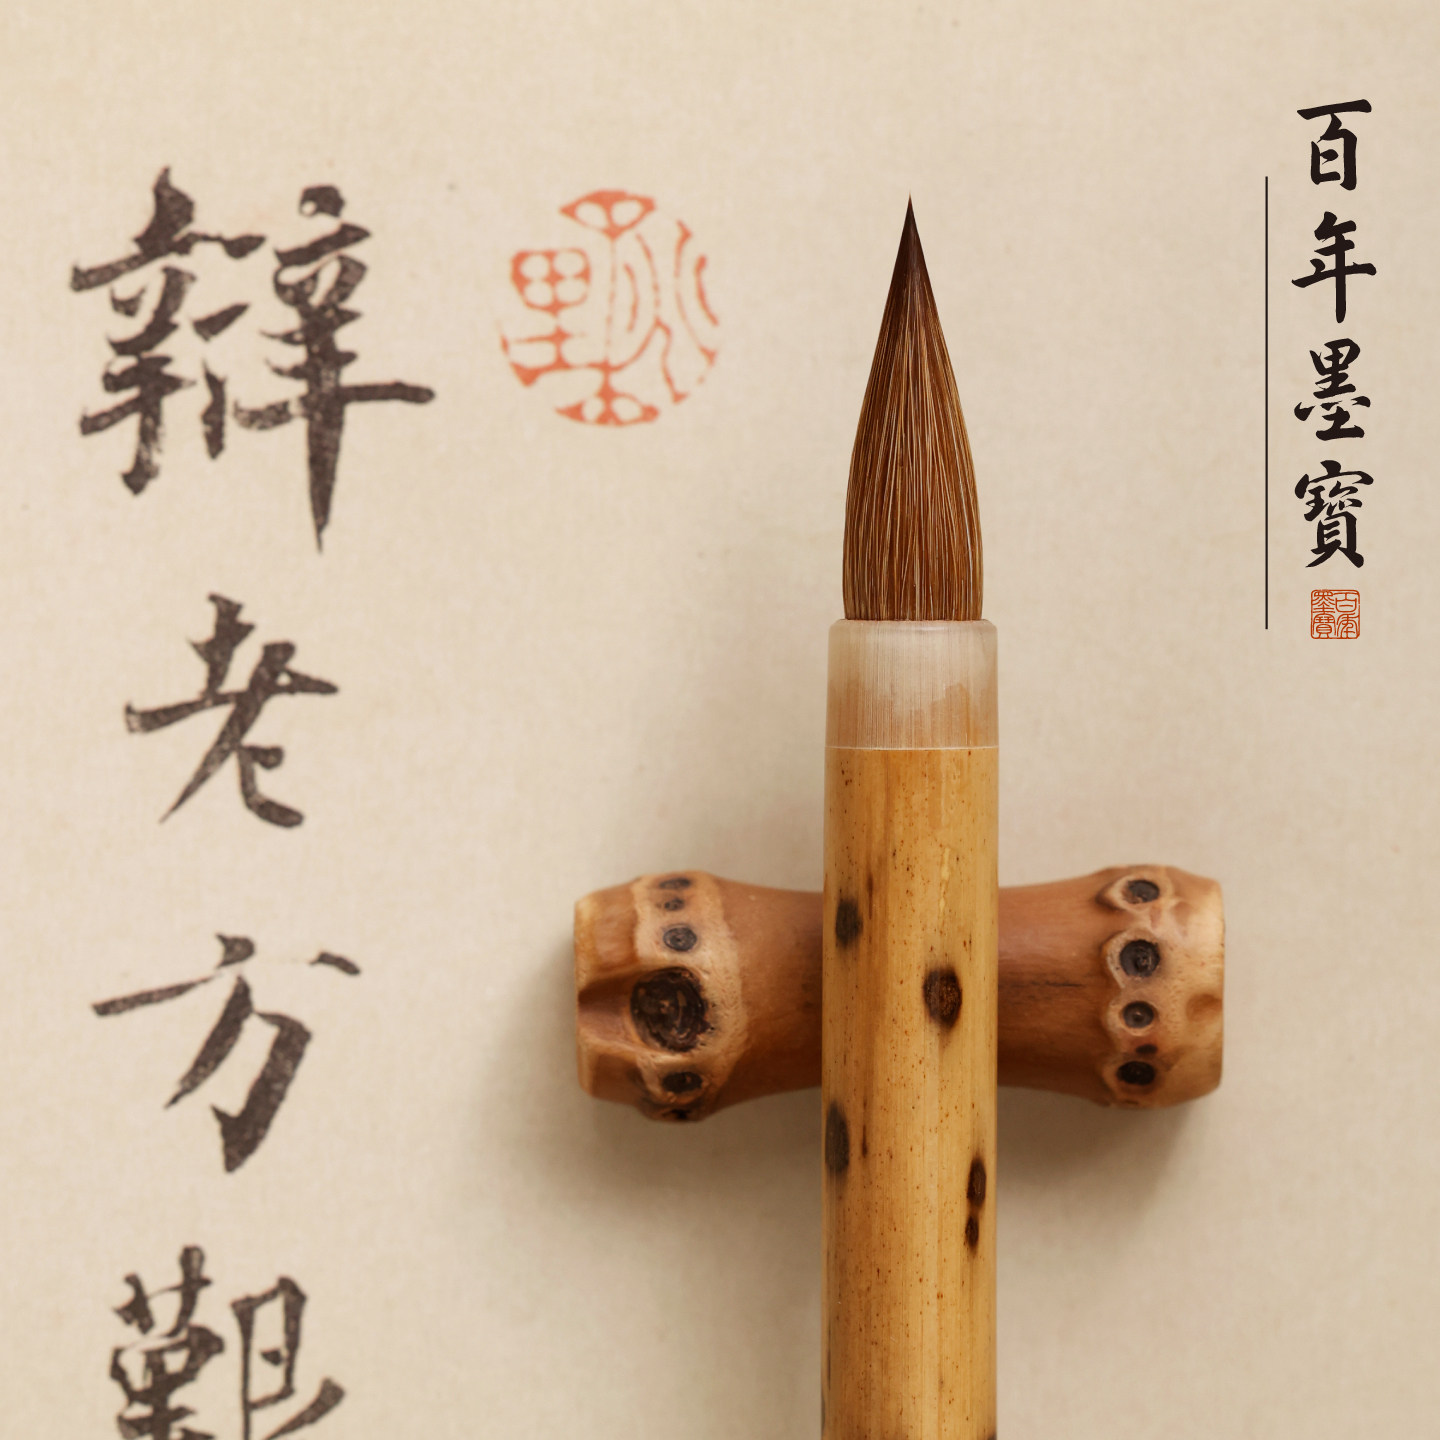 百年墨寶
百年墨寶
辯老方艱